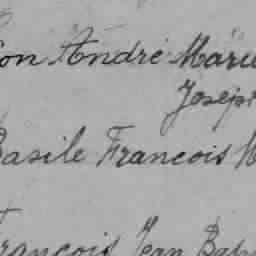 on André Marie
Joseph
Basile Francois
François Jean Bap